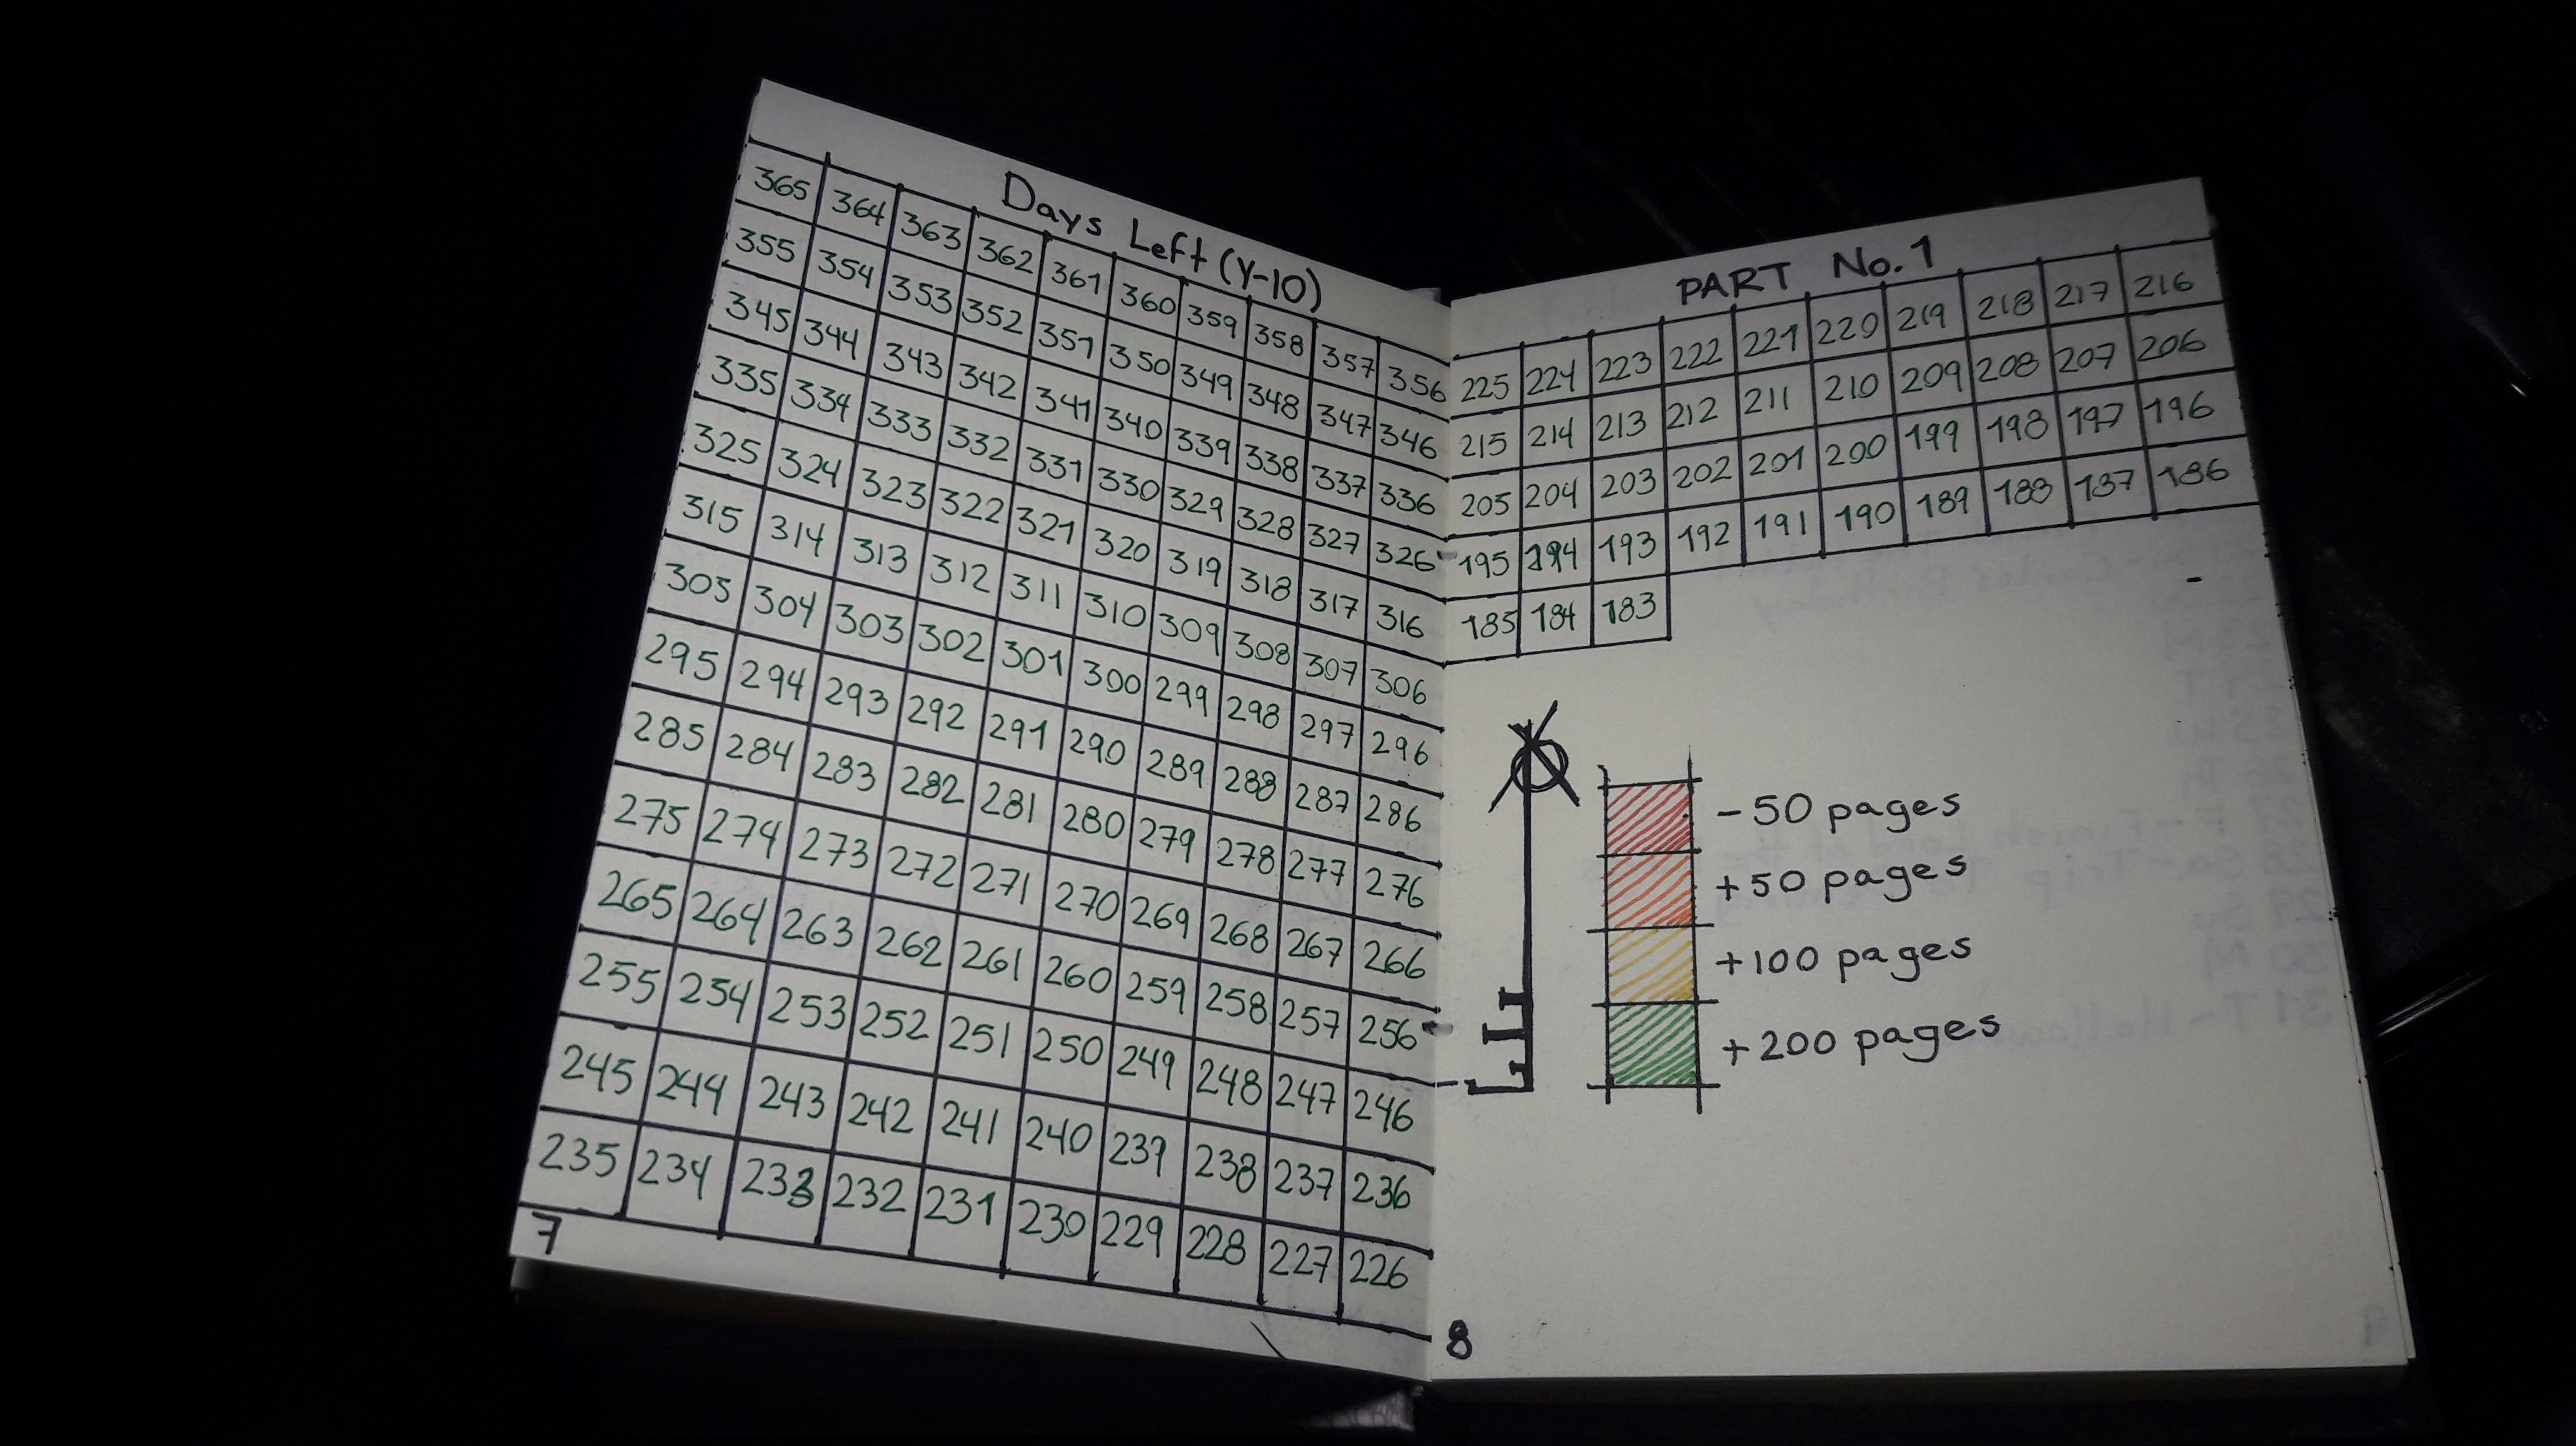 Days Left (Y-10)
365 364 363 362 361 360 359 358 357 356
355 354 353 352 351 350 349 348 347 346
345 344 343 342 341 340 339 338 337 336
335 334 333 332 331 330 329 328 327 326
325 324 323 322 321 320 319 318 317 316
315 314 313 312 311 310 309 308 307 306
305 304 303 302 301 300 299 298 297 296
295 294 293 292 291 290 289 288 287 286
285 284 283 282 281 280 279 278 277 276
275 274 273 272 271 270 269 268 267 266
265 264 263 262 261 260 259 258 257 256
255 254 253 252 251 250 249 248 247 246
245 244 243 242 241 240 239 238 237 236
235 234 233 232 231 230 229 228 227 226
7
PART No. 1
225 224 223 222 221 220 219 218 217 216
215 214 213 212 211 210 209 208 207 206
205 204 203 202 201 200 199 198 197 196
195 194 193 192 191 190 189 188 187 186
185 184 183
- 50 pages
+50 pages
+100 pages
+200 pages
8